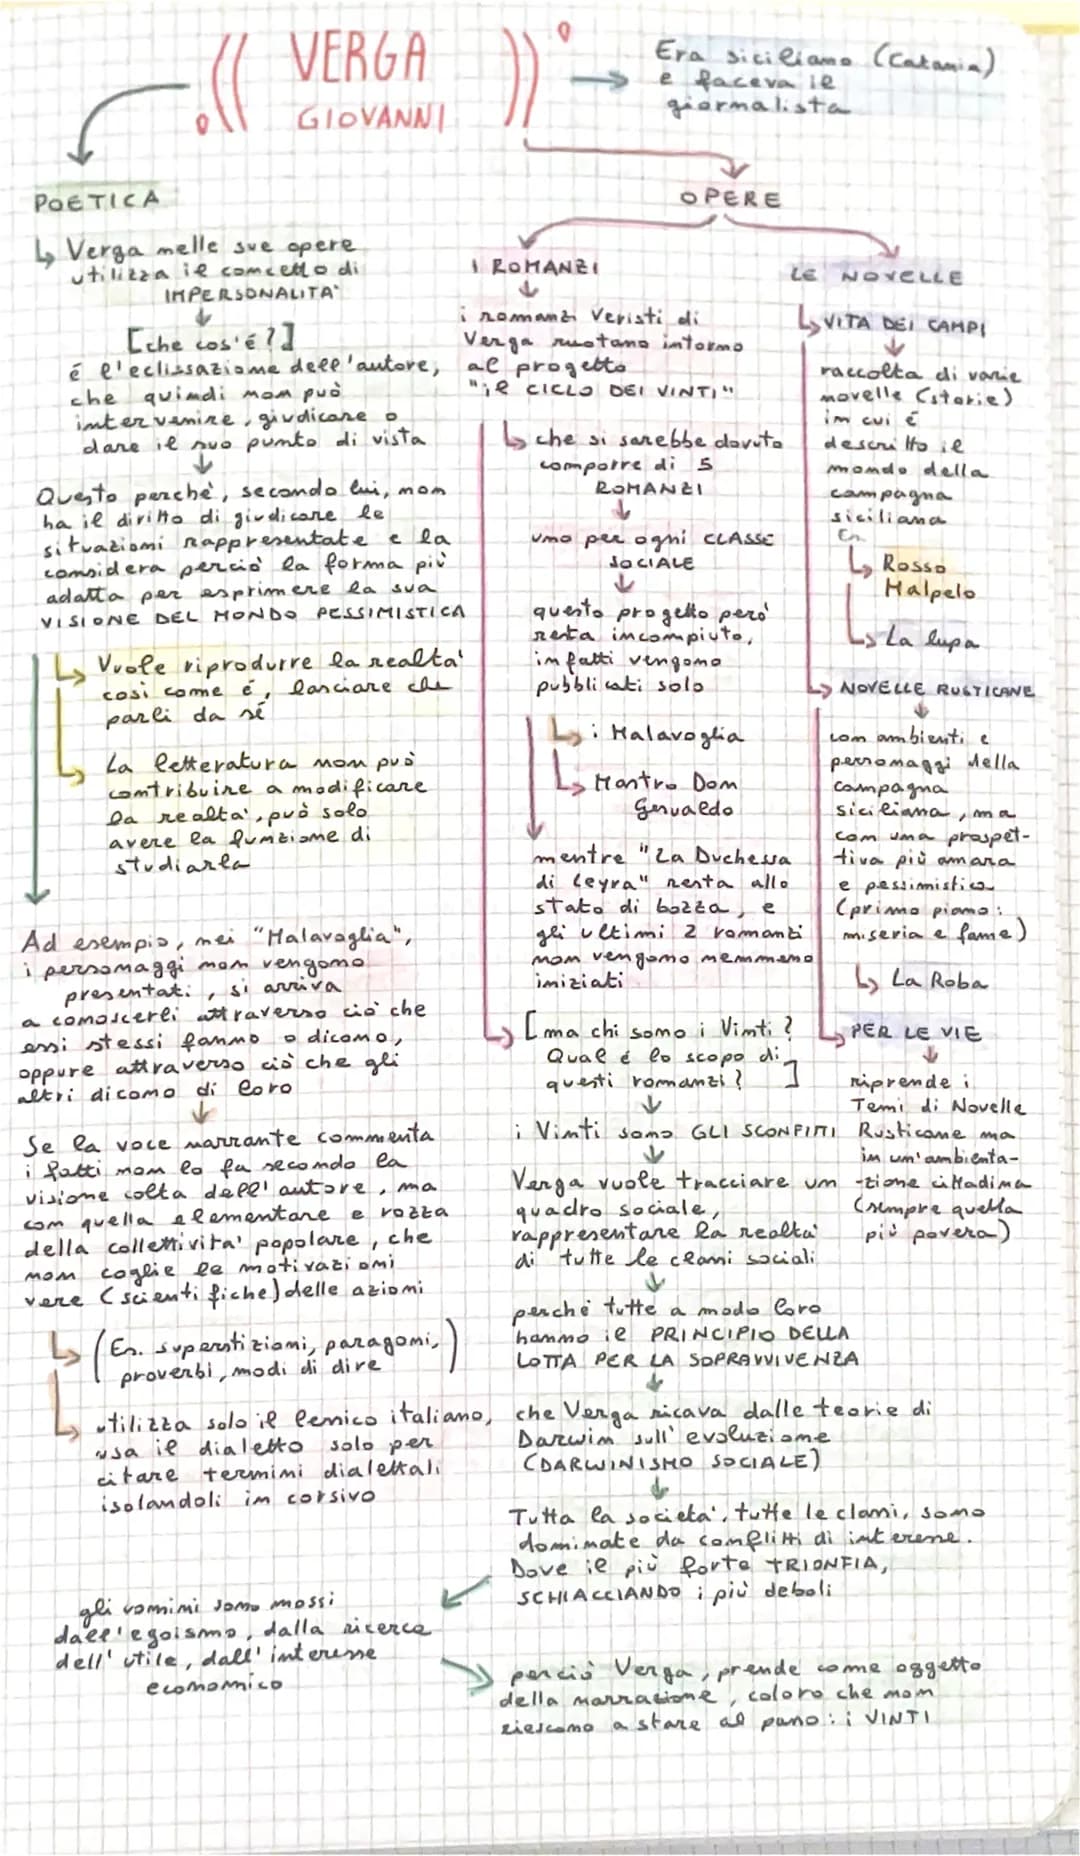 VERGA
GIOVANNI
Era siciliano (Catania)
e faceva il
giornalista
POETICA
Verga nelle sue opere
utilizza il concetto di
IMPERSONALITA'
[che cos'é?]
é l'eclissazione dell'autore,
che quindi non può
intervenire, giudicare o
dare il suo punto di vista
Questo perchè, secondo lui, non
ha il diritto di giudicare le
situazioni rappresentate e la
considera perciò la forma più
adatta per esprimere la sua
VISIONE DEL MONDO PESSIMISTICA
Vuole riprodurre la realta'
così come é, lasciare che
parli da sé
La letteratura non può
contribuire a modificare
la realta', può solo
avere la funzione di
studiarla
Ad esempio, nei "Malavoglia",
i personaggi non vengono
presentati, si arriva
a conoscerli attraverso ciò che
essi stessi fanno o dicono,
oppure attraverso ciò che gli
altri dicono di loro
Se la voce narrante commenta
i fatti non lo fa secondo la
visione colta dell'autore, ma
con quella elementare e rozza
della collettivita' popolare, che
non coglie le motivazioni
vere (scientifiche) delle azioni
(Es. superstizioni, paragoni,
proverbi, modi di dire)
utilizza solo il lessico italiano,
usa il dialetto solo per
citare termini dialettali
isolandoli in corsivo
OPERE
I ROMANZI
i romanzi Veristi di
Verga ruotano intorno
al progetto
"il CICLO DEI VINTI"
che si sarebbe dovuto
comporre di 5
ROMANZI
uno per ogni CLASSE
SOCIALE
questo progetto però
resta incompiuto,
infatti vengono
pubblicati solo
i Malavoglia
Mastro Don
Gesualdo
mentre "La Duchessa
di Leyra" resta allo
stato di bozza, e
gli ultimi 2 romanzi
non vengono nemmeno
iniziati
[ma chi sono i Vinti?
Qual é lo scopo di
questi romanzi?]
i Vinti sono GLI SCONFITTI
Verga vuole tracciare un
quadro sociale,
rappresentare la realta'
di tutte le classi sociali
perché tutte a modo loro
hanno il PRINCIPIO DELLA
LOTTA PER LA SOPRAVVIVENZA
che Verga ricava dalle teorie di
Darwin sull'evoluzione
(DARWINISMO SOCIALE)
Tutta la societa', tutte le classi, sono
dominate da conflitti di interesse.
Dove il più forte TRIONFIA,
SCHIACCIANDO i più deboli
gli uomini sono mossi
dall'egoismo, dalla ricerca
dell'utile, dall'interesse
economico
perciò Verga, prende come oggetto
della narrazione, coloro che non
riescono a stare al passo: i VINTI
LE NOVELLE
VITA DEI CAMPI
raccolta di varie
novelle (storie)
in cui é
descritto il
mondo della
campagna
siciliana
Es.
Rosso
Malpelo
La lupa
NOVELLE RUSTICANE
con ambienti e
personaggi della
campagna
siciliana, ma
con una prospet-
tiva più amara
e pessimistica
(primo piano:
miseria e fame)
La Roba
PER LE VIE
riprende i
Temi di Novelle
Rusticane ma
in un'ambienta-
-zione cittadina
(sempre quella
più povera)